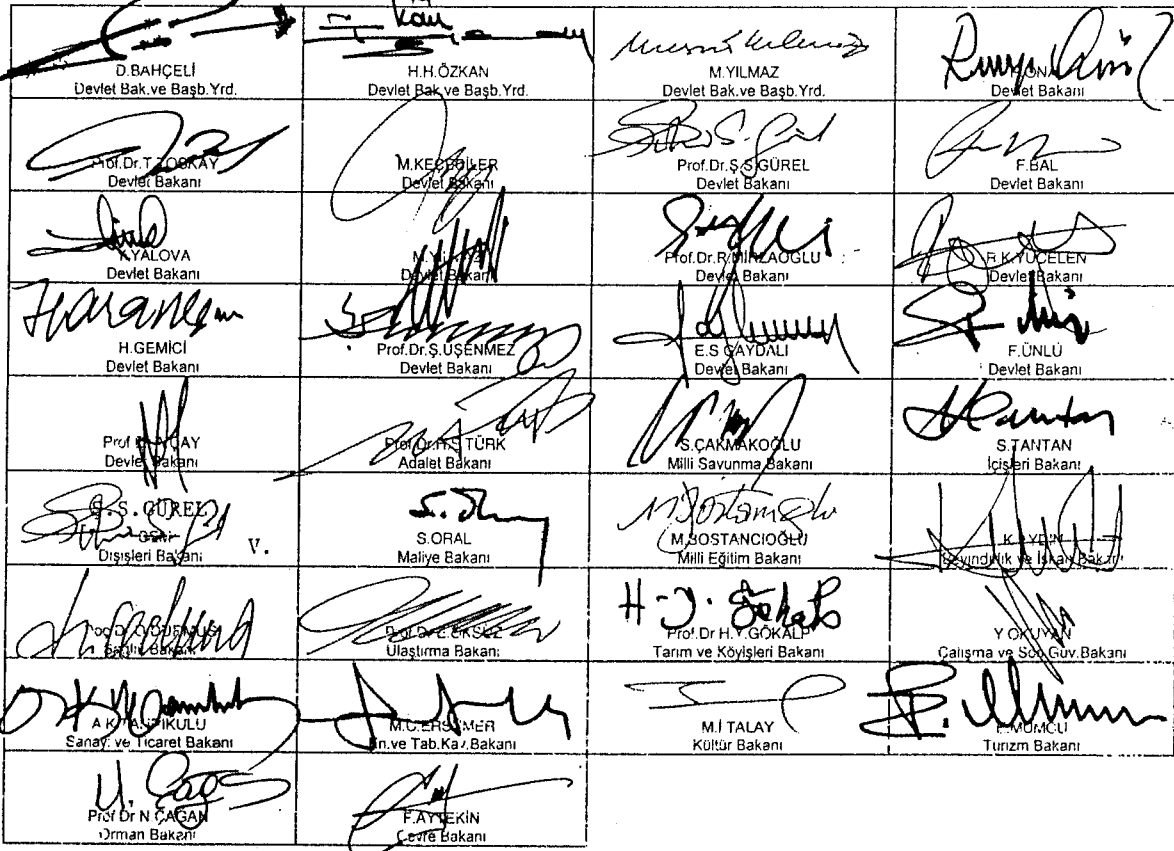 D.BAHÇELİ
Devlet Bak.ve Başb.Yrd.
H.H.ÖZKAN
Devlet Bak.ve Başb.Yrd.
M.YILMAZ
Devlet Bak.ve Başb.Yrd.
Devlet Bakanı
Prof.Dr.T.TOSKAY
Devlet Bakanı
M.KEÇECİLER
Devlet Bakanı
Prof.Dr.Ş.S.GÜREL
Devlet Bakanı
F.BAL
Devlet Bakanı
Y.YALOVA
Devlet Bakanı
Devlet Bakanı
Prof.Dr.R.MİRZAOĞLU
Devlet Bakanı
R.K.YÜCELEN
Devlet Bakanı
H.GEMİCİ
Devlet Bakanı
Prof.Dr.Ş.ÜŞENMEZ
Devlet Bakanı
E.S.GAYDALI
Devlet Bakanı
F.ÜNLÜ
Devlet Bakanı
Devlet Bakanı
Prof.Dr.H.S.TÜRK
Adalet Bakanı
S.ÇAKMAKOĞLU
Milli Savunma Bakanı
S.TANTAN
İçişleri Bakanı
Ş.S.GÜREL
Dışişleri Bakanı V.
S.ORAL
Maliye Bakanı
M.BOSTANCIOĞLU
Milli Eğitim Bakanı
K.AYDIN
Bayındırlık ve İskan Bakanı
Sağlık Bakanı
Ulaştırma Bakanı
Prof.Dr H.Y.GÖKALP
Tarım ve Köyişleri Bakanı
Y OKUYAN
Çalışma ve Sos.Güv.Bakanı
Sanayi ve Ticaret Bakanı
M.C.ERSÜMER
En.ve Tab.Kay.Bakanı
M.İ TALAY
Kültür Bakanı
E.MUMCU
Turizm Bakanı
Prof Dr N ÇAĞAN
Orman Bakanı
F.AYTEKİN
Çevre Bakanı